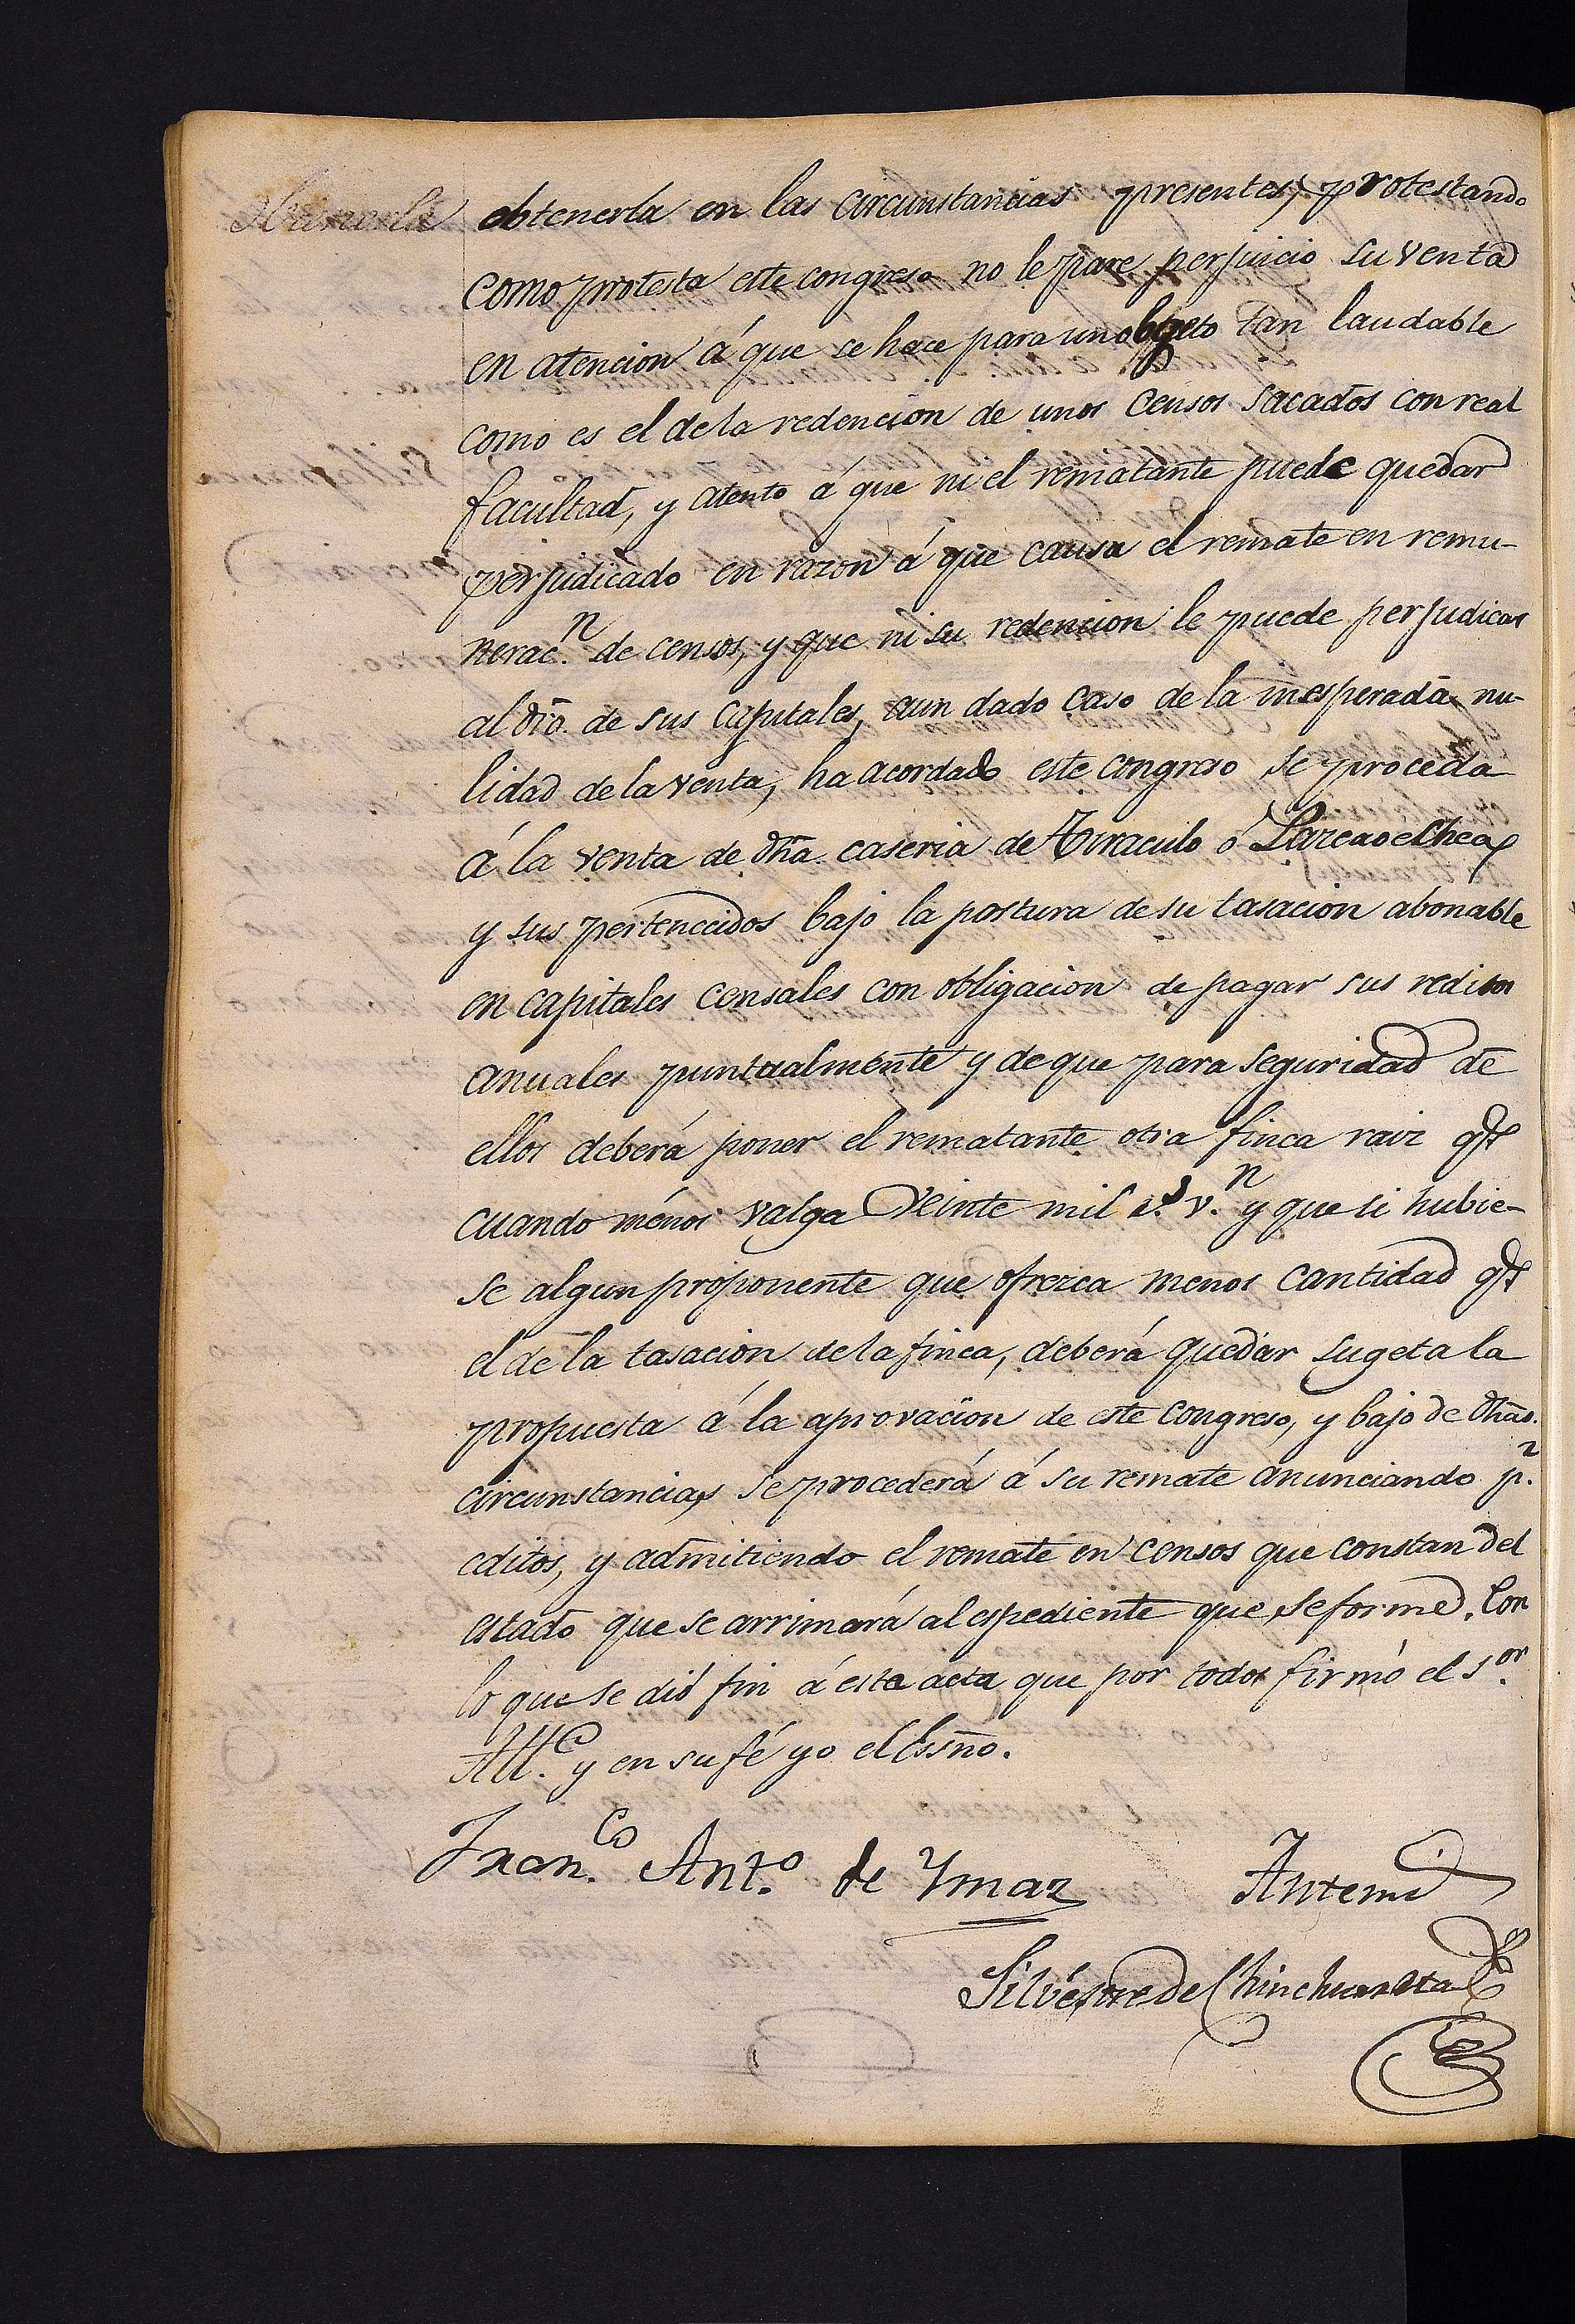 obtenerla en las circunstancias presentes, protestando
como protesta este congreso no le pare perjuicio su venta
en atencion á que se hace para un obgeto tan laudable
como es el de la redencion de unos Censos sacados con real
facultad, y atento á que ni el rematante puede quedar
perjudicado en razon á que causa el remate en remu-
nerac.n de censos, y que ni su redencion le puede perjudicar
al dro. de sus capitales, aun dado caso de la inesperada nu-
lidad de la venta, ha acordado este congreso se proceda
á la venta de dha. caseria de Turaculo ó Larcaoechea
y sus pertenecidos bajo la postura de su tasacion abonable
en capitales censales con obligacion de pagar sus reditos
anuales puntualmente y de que para seguridad de
ellos deberá poner el rematante otra finca raiz q.e
cuando ménos valga Veinte mil r.s v.n y que si hubie-
se algun proponente que ofrezca menos cantidad q.e
el de la tasacion de la finca, deberá quedar sugeta la
propuesta á la aprovacion de este congreso, y bajo de dhas.
circunstancias se procederá á su remate anunciando p.r
editos, y admitiendo el remate en censos que constan del
estado que se arrimará al espediente que se forme. Con
lo que se dió fin á esta acta que por todos firmó el s.or
All.e y en su fé yo el Essno.
Fran.co Ant.o de Ymaz Antemi
Silvéstre de Chinchurreta